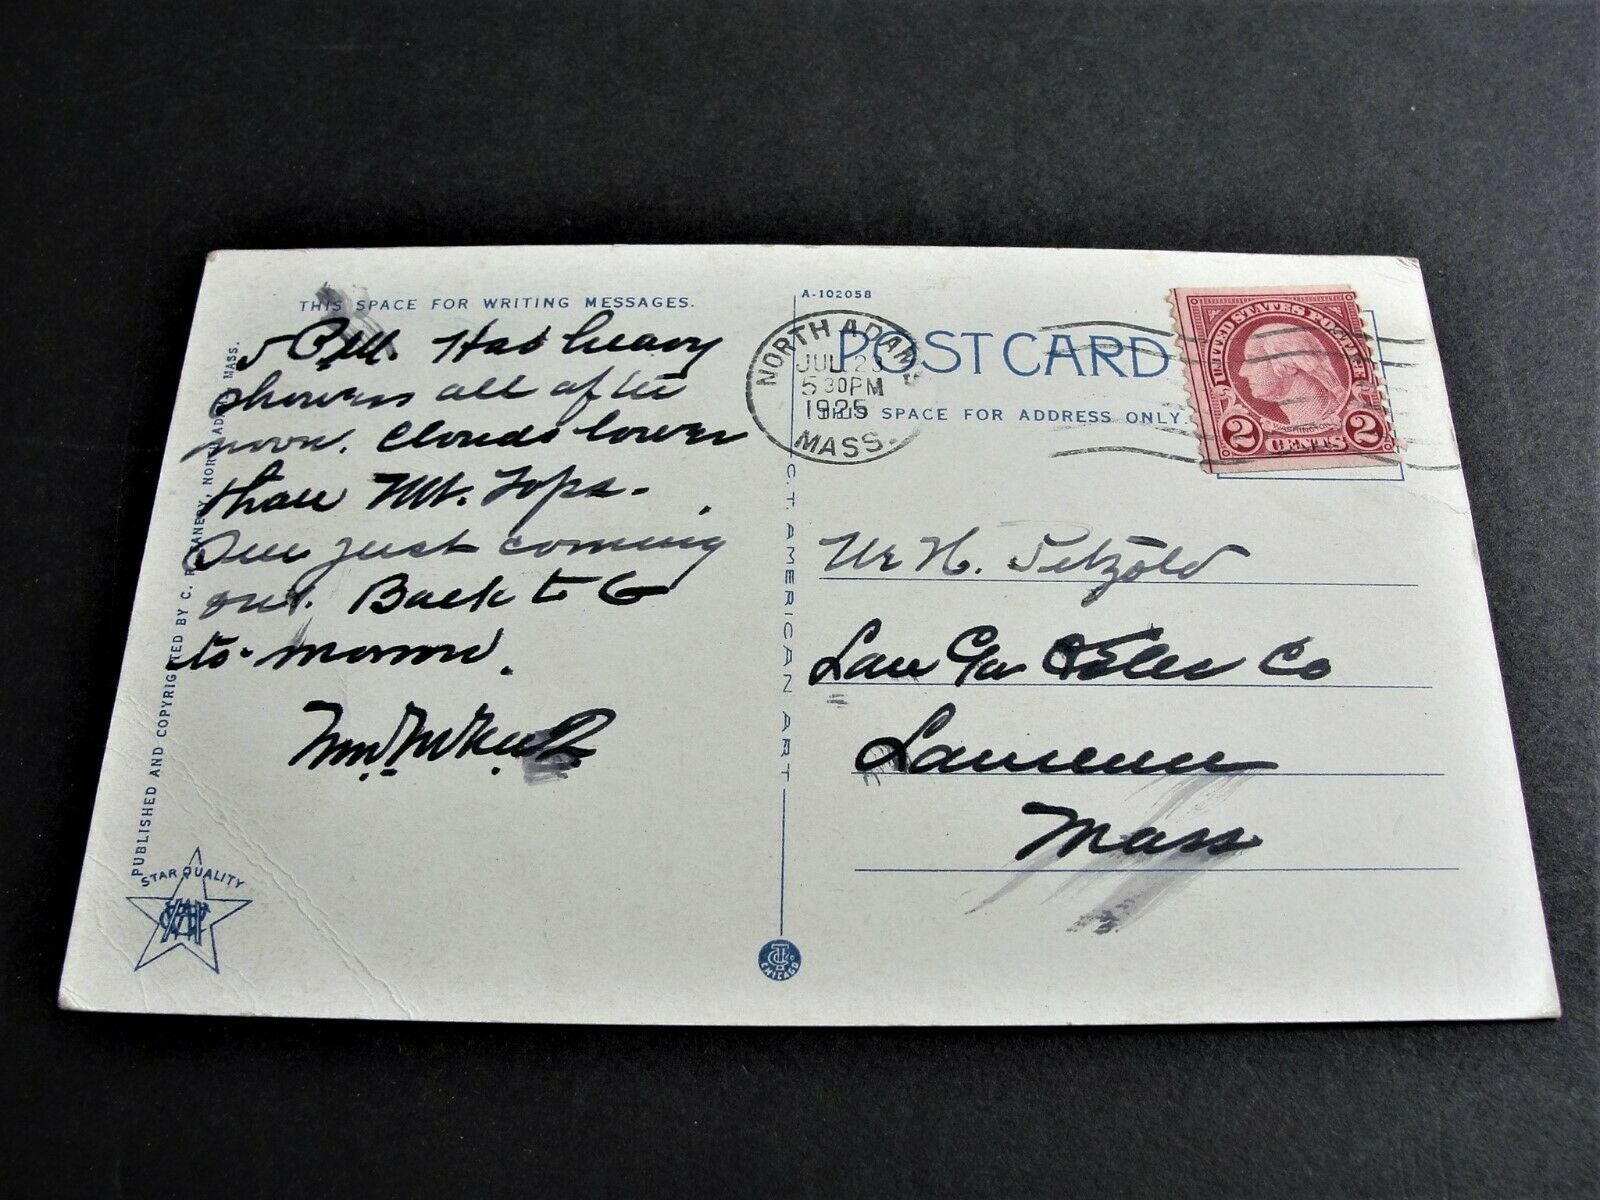 THIS SPACE FOR WRITING MESSAGES.
5 P.M. Had heavy
showers all after
noon. Clouds lower
than Mt. Tops.
Sun just coming
out. Back to G
to-morrow.
PUBLISHED AND COPYRIGHTED BY C. R. CANEDY, NORTH ADAMS, MASS.
STAR QUALITY
A-102058
C.T. AMERICAN ART
CHICAGO
POST CARD
THIS SPACE FOR ADDRESS ONLY.
NORTH ADAMS
JUL 2
5 30 PM
1925
MASS.
UNITED STATES POSTAGE
WASHINGTON
2 CENTS 2
Mr H. Petzold
Law Gas & Elec Co
Lawrence
Mass